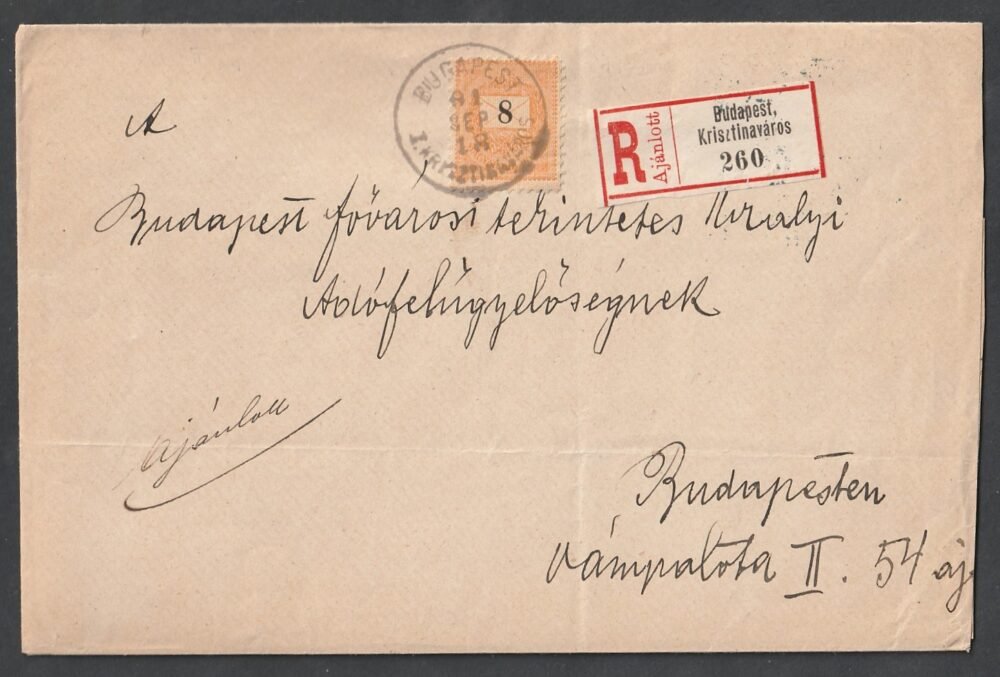 BUDAPEST
SEP
18
I. KRISZTINAVÁROS
8
R
Ajánlott
Budapest,
Krisztinaváros
260
A
Budapest fővárosi tekintetes Kiralyi
Adófelügyelőségnek
Ajánlott
Budapesten
Vámpalota II. 54 aj